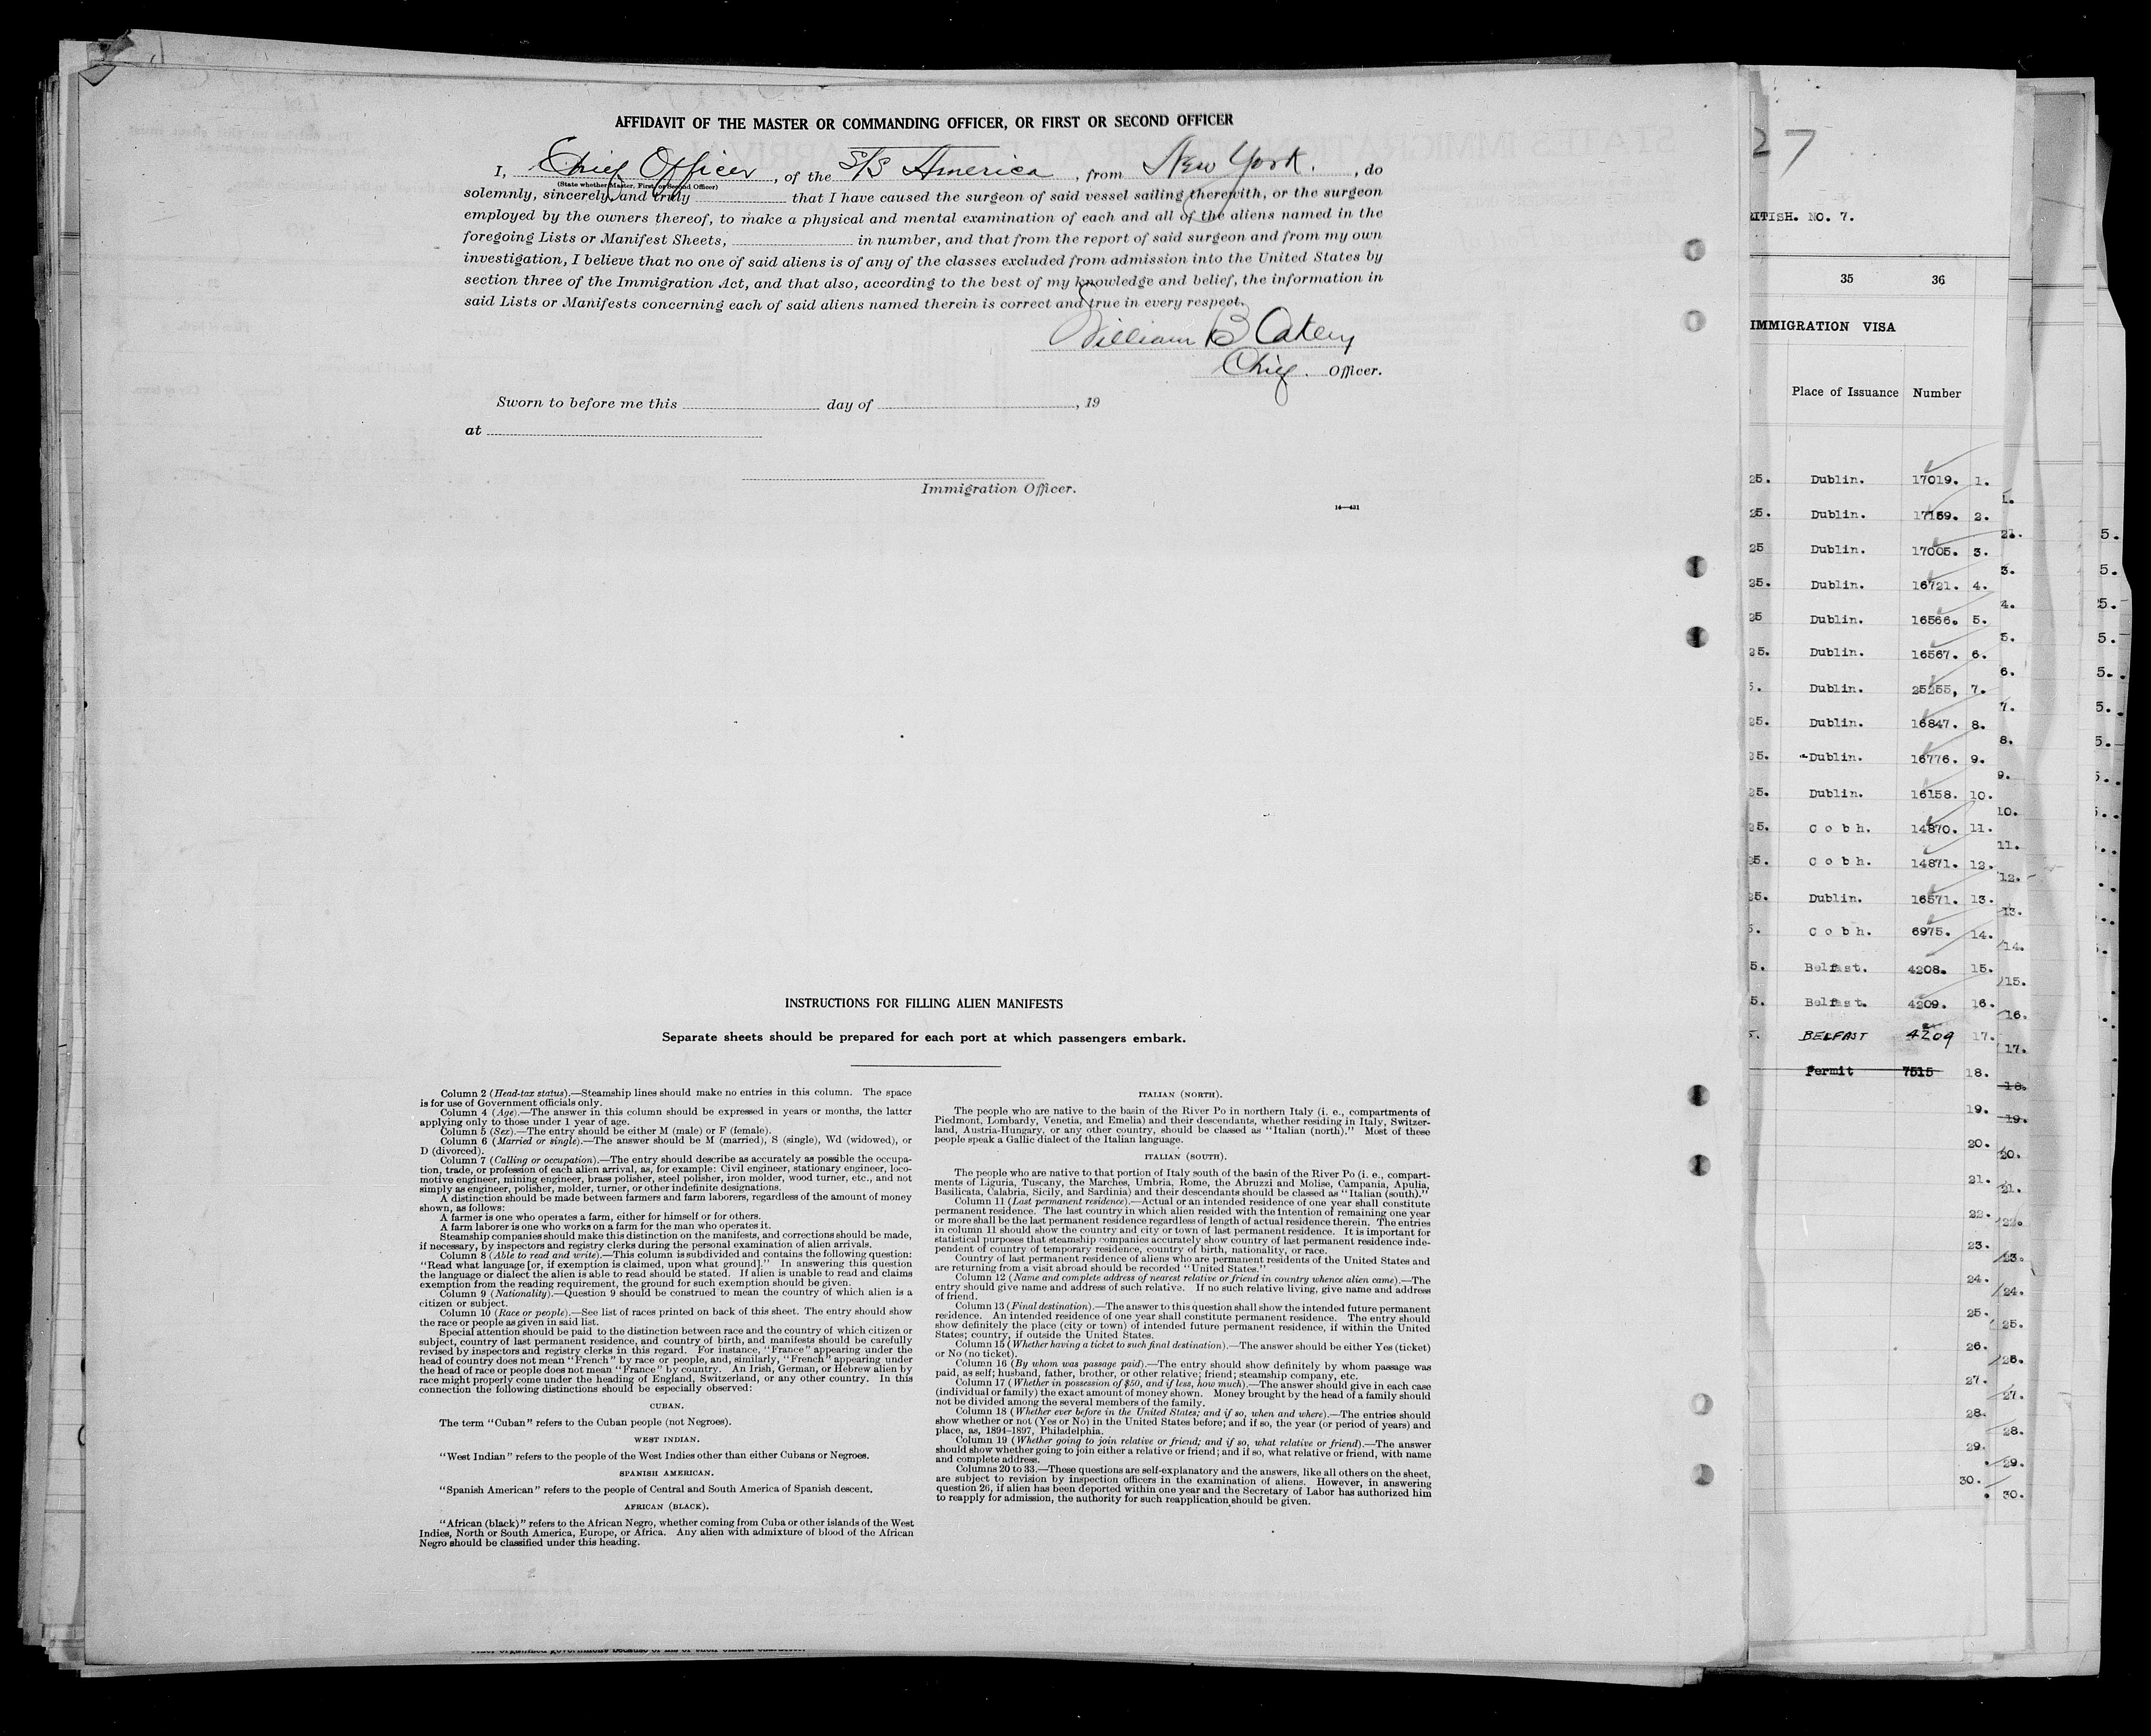 AFFIDAVIT OF THE MASTER OR COMMANDING OFFICER, OR FIRST OR SECOND OFFICER
I, Chief Officer, of the S/S America, from New York., do
(State whether Master, First, or Second Officer)
solemnly, sincerely, and truly that I have caused the surgeon of said vessel sailing therewith, or the surgeon
employed by the owners thereof, to make a physical and mental examination of each and all of the aliens named in the
foregoing Lists or Manifest Sheets, in number, and that from the report of said surgeon and from my own
investigation, I believe that no one of said aliens is of any of the classes excluded from admission into the United States by
section three of the Immigration Act, and that also, according to the best of my knowledge and belief, the information in
said Lists or Manifests concerning each of said aliens named therein is correct and true in every respect.
William B Oakley
Chief. Officer.
Sworn to before me this day of , 19
at
Immigration Officer.
14—431
INSTRUCTIONS FOR FILLING ALIEN MANIFESTS
Separate sheets should be prepared for each port at which passengers embark.
Column 2 (Head-tax status).—Steamship lines should make no entries in this column. The space
is for use of Government officials only.
Column 4 (Age).—The answer in this column should be expressed in years or months, the latter
applying only to those under 1 year of age.
Column 5 (Sex).—The entry should be either M (male) or F (female).
Column 6 (Married or single).—The answer should be M (married), S (single), Wd (widowed), or
D (divorced).
Column 7 (Calling or occupation).—The entry should describe as accurately as possible the occupa-
tion, trade, or profession of each alien arrival, as, for example: Civil engineer, stationary engineer, loco-
motive engineer, mining engineer, brass polisher, steel polisher, iron molder, wood turner, etc., and not
simply as engineer, polisher, molder, turner, or other indefinite designations.
A distinction should be made between farmers and farm laborers, regardless of the amount of money
shown, as follows:
A farmer is one who operates a farm, either for himself or for others.
A farm laborer is one who works on a farm for the man who operates it.
Steamship companies should make this distinction on the manifests, and corrections should be made,
if necessary, by inspectors and registry clerks during the personal examination of alien arrivals.
Column 8 (Able to read and write).—This column is subdivided and contains the following question:
"Read what language [or, if exemption is claimed, upon what ground]." In answering this question
the language or dialect the alien is able to read should be stated. If alien is unable to read and claims
exemption from the reading requirement, the ground for such exemption should be given.
Column 9 (Nationality).—Question 9 should be construed to mean the country of which alien is a
citizen or subject.
Column 10 (Race or people).—See list of races printed on back of this sheet. The entry should show
the race or people as given in said list.
Special attention should be paid to the distinction between race and the country of which citizen or
subject, country of last permanent residence, and country of birth, and manifests should be carefully
revised by inspectors and registry clerks in this regard. For instance, "France" appearing under the
head of country does not mean "French" by race or people, and, similarly, "French" appearing under
the head of race or people does not mean "France" by country. An Irish, German, or Hebrew alien by
race might properly come under the heading of England, Switzerland, or any other country. In this
connection the following distinctions should be especially observed:
CUBAN.
The term "Cuban" refers to the Cuban people (not Negroes).
WEST INDIAN.
"West Indian" refers to the people of the West Indies other than either Cubans or Negroes.
SPANISH AMERICAN.
"Spanish American" refers to the people of Central and South America of Spanish descent.
AFRICAN (BLACK).
"African (black)" refers to the African Negro, whether coming from Cuba or other islands of the West
Indies, North or South America, Europe, or Africa. Any alien with admixture of blood of the African
Negro should be classified under this heading.
ITALIAN (NORTH).
The people who are native to the basin of the River Po in northern Italy (i. e., compartments of
Piedmont, Lombardy, Venetia, and Emelia) and their descendants, whether residing in Italy, Switzer-
land, Austria-Hungary, or any other country, should be classed as "Italian (north)." Most of these
people speak a Gallic dialect of the Italian language.
ITALIAN (SOUTH).
The people who are native to that portion of Italy south of the basin of the River Po (i. e., compart-
ments of Liguria, Tuscany, the Marches, Umbria, Rome, the Abruzzi and Molise, Campania, Apulia,
Basilicata, Calabria, Sicily, and Sardinia) and their descendants should be classed as "Italian (south)."
Column 11 (Last permanent residence).—Actual or an intended residence of one year shall constitute
permanent residence. The last country in which alien resided with the intention of remaining one year
or more shall be the last permanent residence regardless of length of actual residence therein. The entries
in column 11 should show the country and city or town of last permanent residence. It is important for
statistical purposes that steamship companies accurately show country of last permanent residence inde-
pendent of country of temporary residence, country of birth, nationality, or race.
Country of last permanent residence of aliens who are permanent residents of the United States and
are returning from a visit abroad should be recorded "United States."
Column 12 (Name and complete address of nearest relative or friend in country whence alien came).—The
entry should give name and address of such relative. If no such relative living, give name and address
of friend.
Column 13 (Final destination).—The answer to this question shall show the intended future permanent
residence. An intended residence of one year shall constitute permanent residence. The entry should
show definitely the place (city or town) of intended future permanent residence, if within the United
States; country, if outside the United States.
Column 15 (Whether having a ticket to such final destination).—The answer should be either Yes (ticket)
or No (no ticket).
Column 16 (By whom was passage paid).—The entry should show definitely by whom passage was
paid, as self; husband, father, brother, or other relative; friend; steamship company, etc.
Column 17 (Whether in possession of $50, and if less, how much).—The answer should give in each case
(individual or family) the exact amount of money shown. Money brought by the head of a family should
not be divided among the several members of the family.
Column 18 (Whether ever before in the United States; and if so, when and where).—The entries should
show whether or not (Yes or No) in the United States before; and if so, the year (or period of years) and
place, as, 1894–1897, Philadelphia.
Column 19 (Whether going to join relative or friend; and if so, what relative or friend).—The answer
should show whether going to join either a relative or friend; and if so, what relative or friend, with name
and complete address.
Columns 20 to 33.—These questions are self-explanatory and the answers, like all others on the sheet,
are subject to revision by inspection officers in the examination of aliens. However, in answering
question 26, if alien has been deported within one year and the Secretary of Labor has authorized him
to reapply for admission, the authority for such reapplication should be given.
27
ITISH. NO. 7.
35 36
IMMIGRATION VISA
Place of Issuance Number
25. Dublin. 17019. 1.
25. Dublin. 17159. 2.
25 Dublin. 17005. 3.
25. Dublin. 16721. 4.
25 Dublin. 16566. 5.
25. Dublin. 16567. 6.
5. Dublin. 25255, 7.
25. Dublin. 16847. 8.
25. Dublin. 16776. 9.
25. Dublin. 16158. 10.
25. C o b h. 14870. 11.
25. C o b h. 14871. 12.
25. Dublin. 16571. 13.
5. C o b h. 6975. 14.
5. Belfast. 4208. 15.
5. Belfast. 4209. 16.
5. BELFAST 4209 17.
Permit 7515 18.
19.
20.
21.
22.
23.
24.
25.
26.
27.
28.
29.
30.